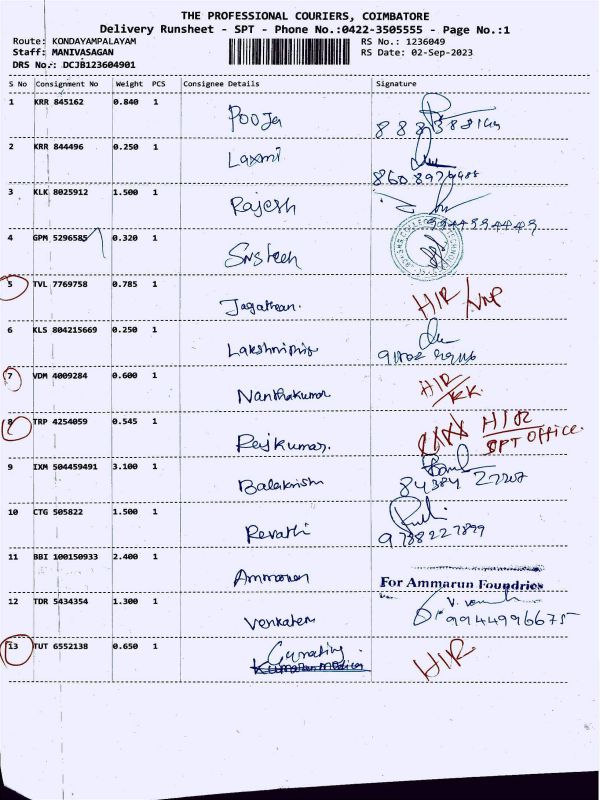 THE PROFESSIONAL COURIERS, COIMBATORE
Delivery Runsheet - SPT - Phone No.:0422-3505555 - Page No.:1
Route: KONDAYAMPALAYAM RS No.: 1236049
Staff: MANIVASAGAN RS Date: 02-Sep-2023
DRS No.: DCJB123604901
S No Consignment No Weight PCS Consignee Details Signature
1 KRR 845162 0.840 1 Pooja
2 KRR 844496 0.250 1 Laxmi
3 KLK 8025912 1.500 1 Rajesh
4 GPM 5296585 0.320 1 Sns tech
5 TVL 7769758 0.785 1 H/R
6 KLS 804215669 0.250 1
7 VDM 4009284 0.600 1 Nanthakumar H/R/KK.
8 TRP 4254059 0.545 1 Rajkumar. H/R
SPT Office.
9 IXM 504459491 3.100 1 Balakrish
84384 27207
10 CTG 505822 1.500 1 Revathi
9788227899
11 BBI 100150933 2.400 1
For Ammarun Foundries
12 TDR 5434354 1.300 1 Venkatesh
9944996675
13 TUT 6552138 0.650 1 H/R